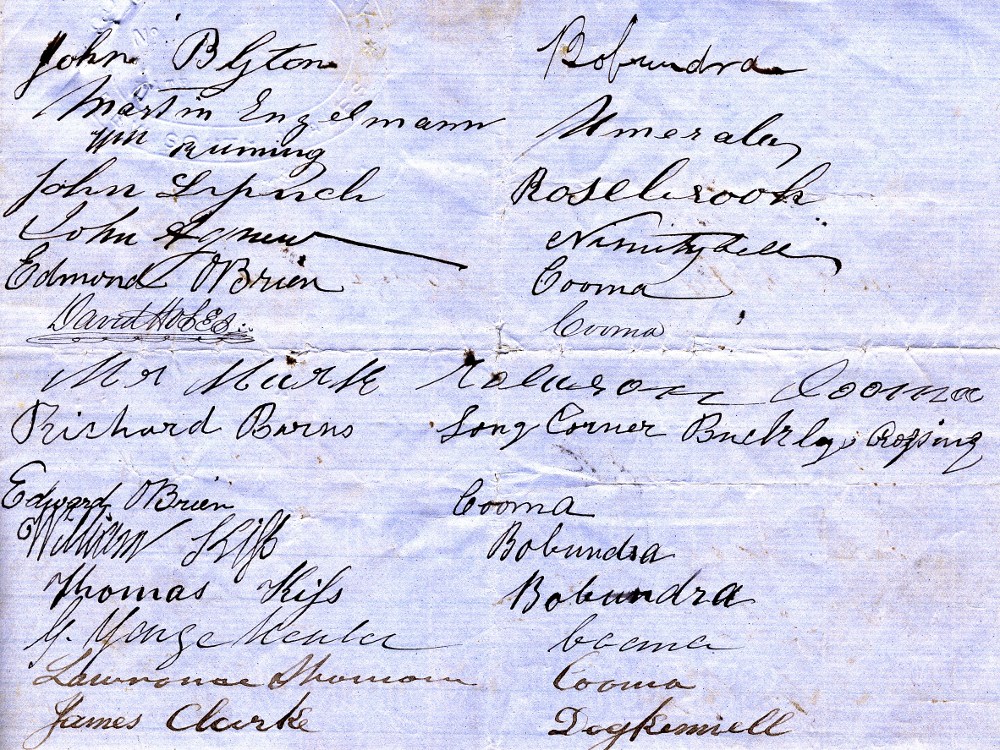 John Blyton Bobundra
Martin Engelmann Umeralay
Wm Ruming
John Lynch Rosebrook
John Agnew Nimitybell
Edmond O'Brien Cooma
David Cooma
Mr Mark Cooma
Richard Barns Long Corner Buckleys Crossing
Edward O'Brien Cooma
William Bobundra
Thomas Kiss Bobundra
G. Cooma
Lawrance Thomson Cooma
James Clarke Dogkennell